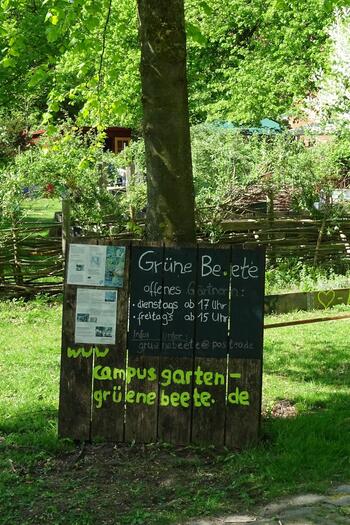 Grüne Beete
offenes Gärtnern:
• dienstags ab 17 Uhr
• freitags ab 15 Uhr
Infos unter:
gruenebeete@posteo.de
www
campusgarten-
grüenebeete.de